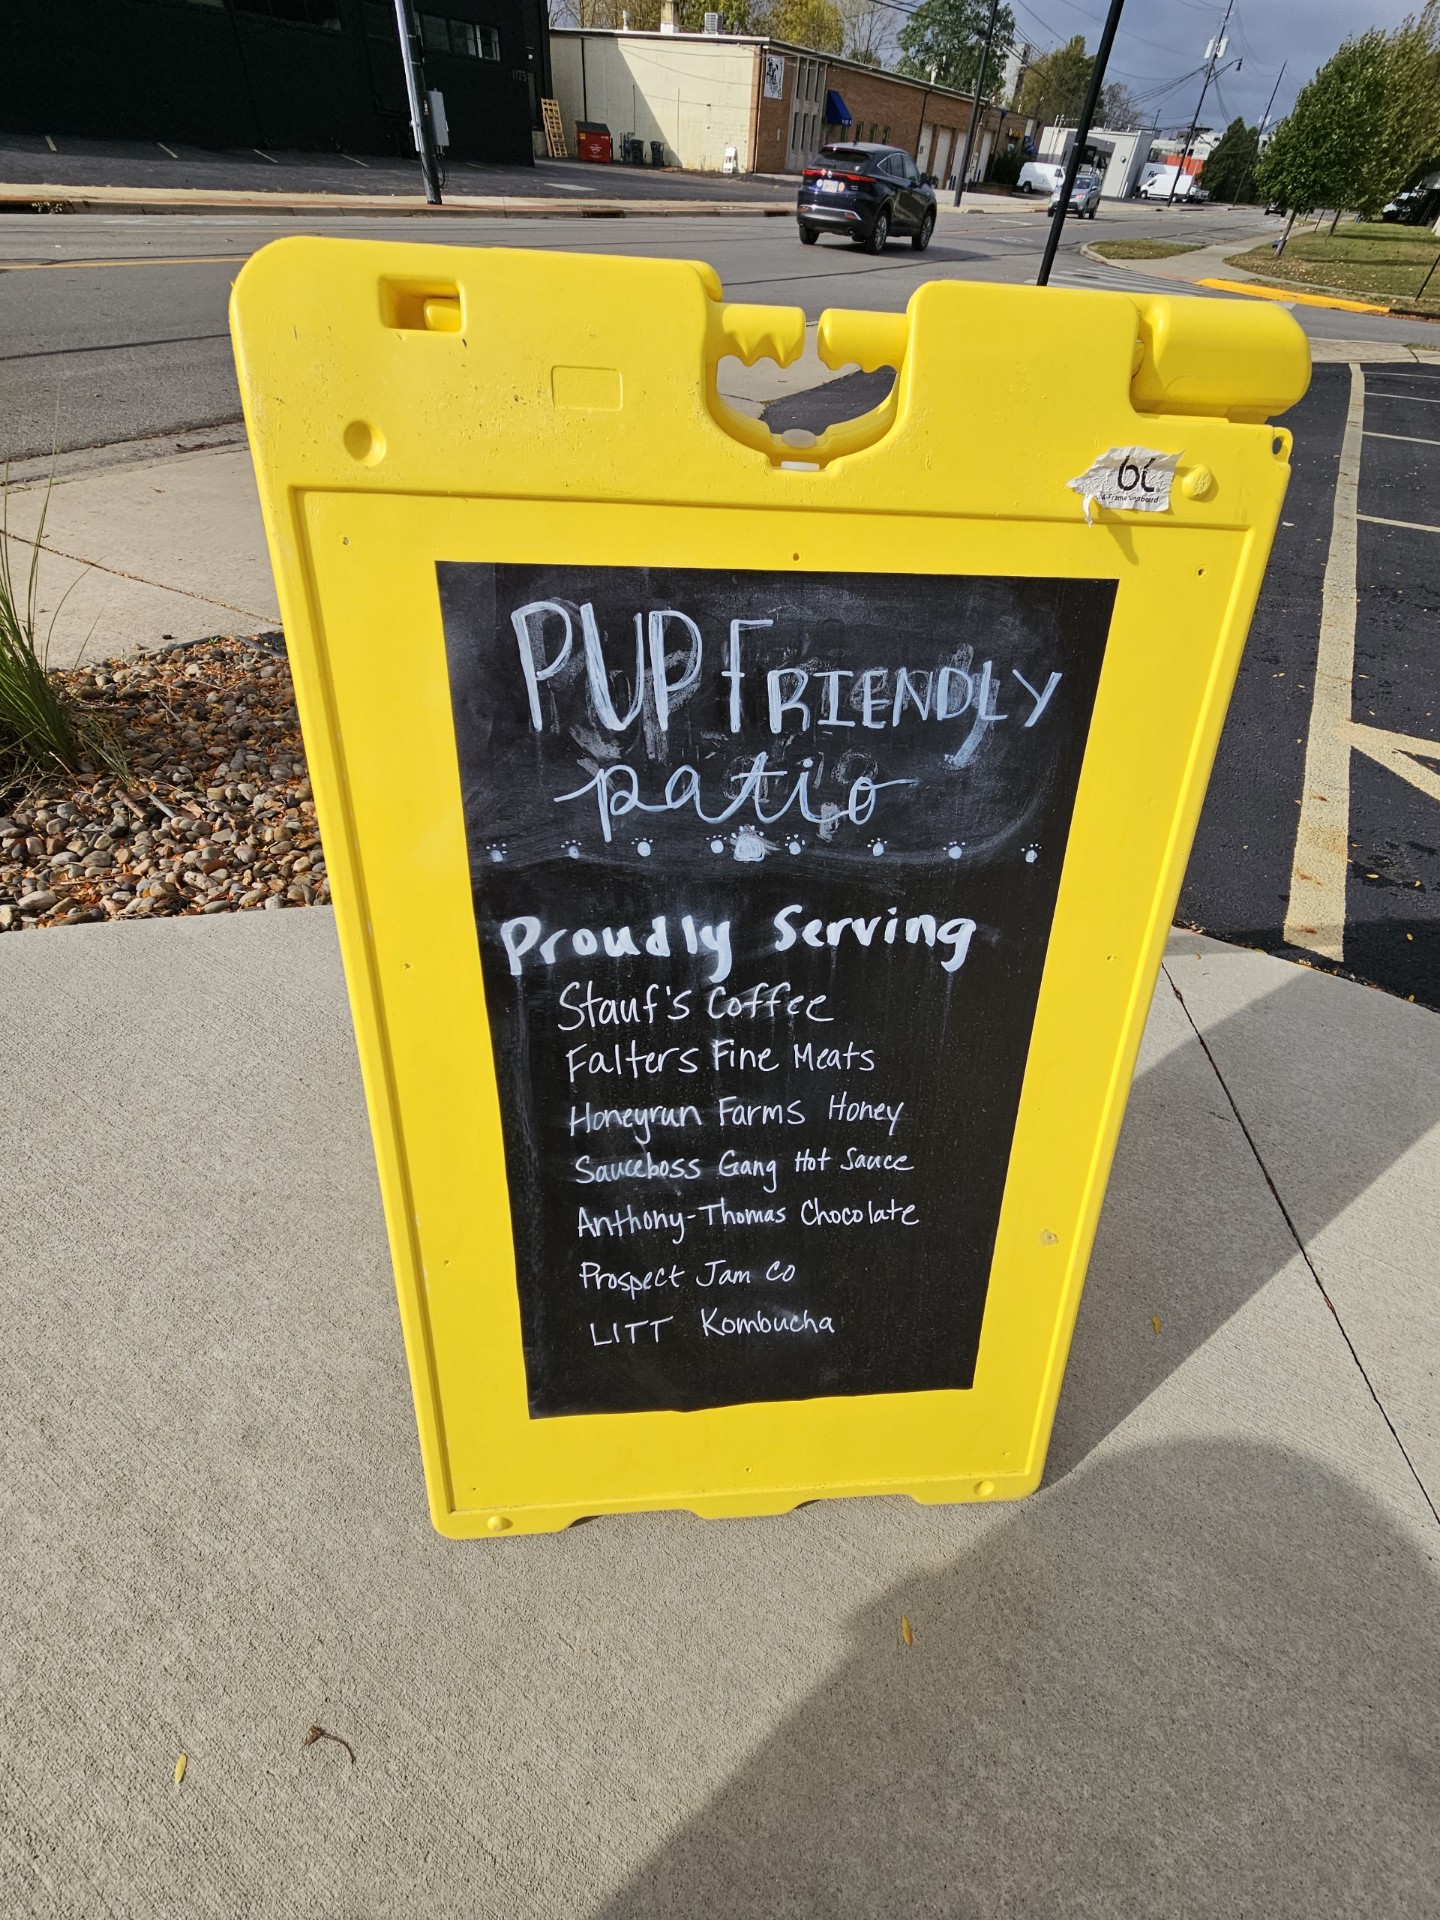 1175
6L
A-Frame Signboard
PUP FRIENDLY
patio
Proudly Serving
Stauf's Coffee
Falters Fine Meats
Honeyrun Farms Honey
Sauceboss Gang Hot Sauce
Anthony-Thomas Chocolate
Prospect Jam Co
LITT Kombucha